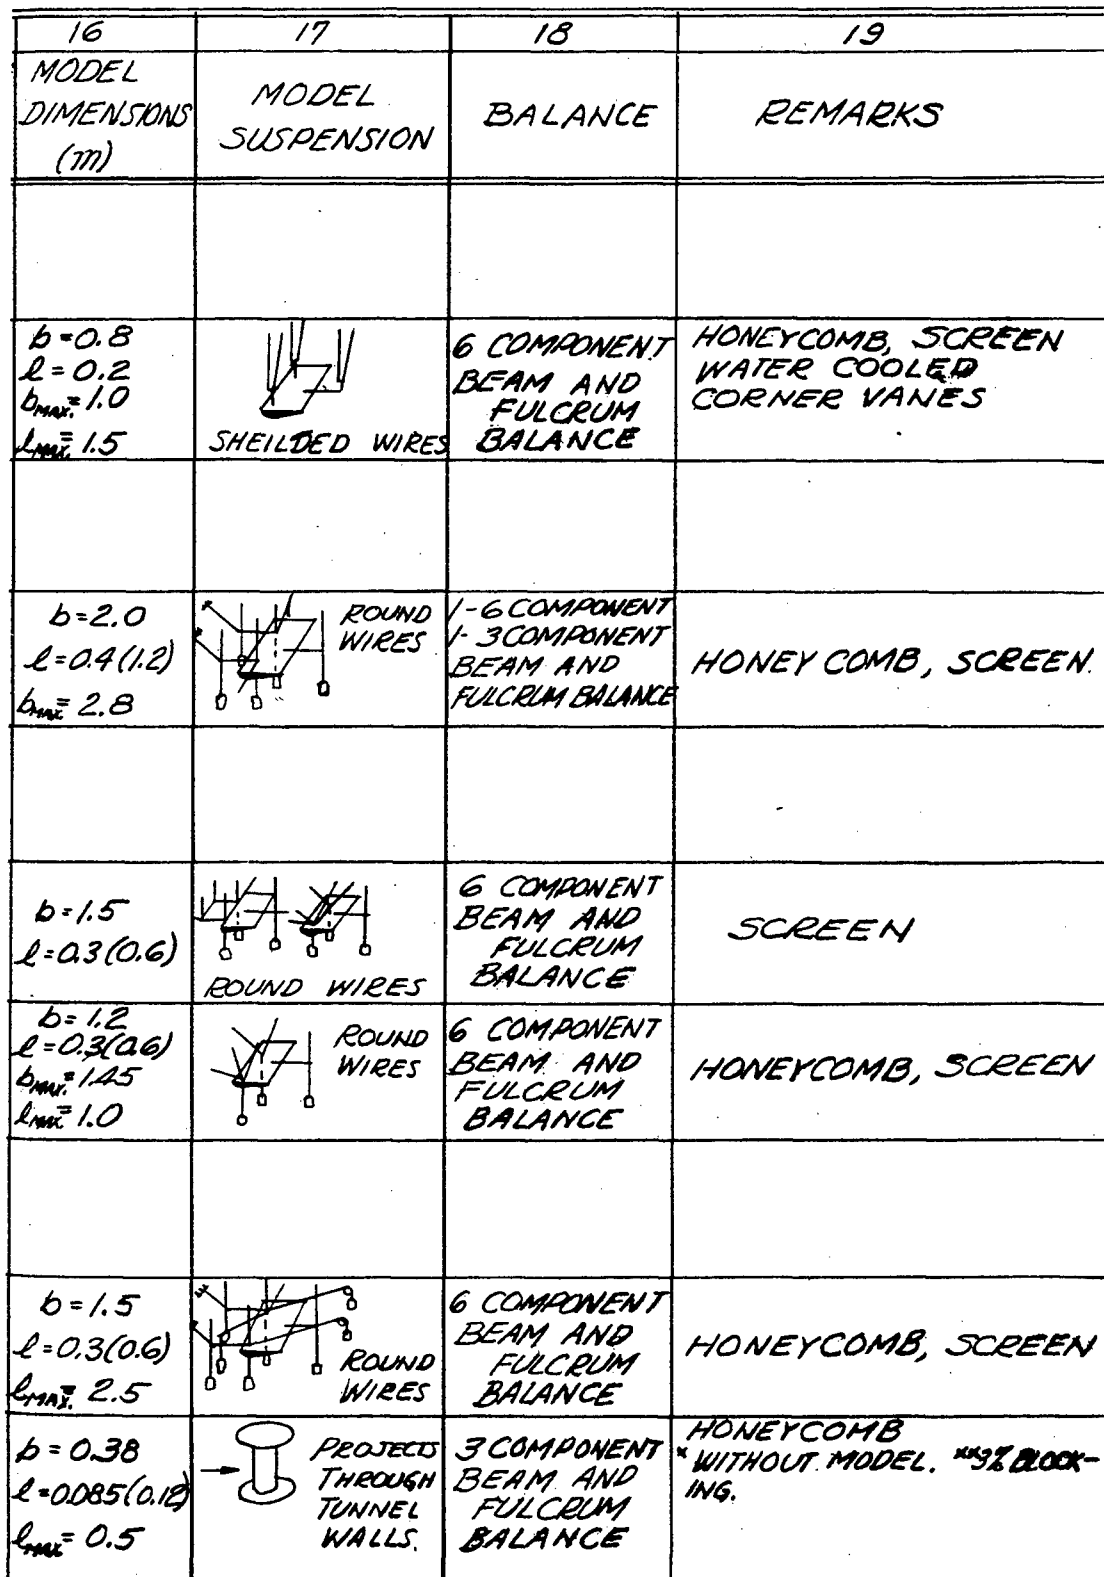 16 17 18 19
MODEL DIMENSIONS (m)
MODEL SUSPENSION
BALANCE
REMARKS
b=0.8
l=0.2
bMAX.=1.0
lMAX.=1.5
SHEILDED WIRES
6 COMPONENT
BEAM AND
FULCRUM
BALANCE
HONEYCOMB, SCREEN
WATER COOLED
CORNER VANES
b=2.0
l=0.4(1.2)
bMAX=2.8
ROUND
WIRES
1-6 COMPONENT
1-3 COMPONENT
BEAM AND
FULCRUM BALANCE
HONEY COMB, SCREEN.
b=1.5
l=0.3(0.6)
ROUND WIRES
6 COMPONENT
BEAM AND
FULCRUM
BALANCE
SCREEN
b=1.2
l=0.3(0.6)
bMAX.=1.45
lMAX=1.0
ROUND
WIRES
6 COMPONENT
BEAM AND
FULCRUM
BALANCE
HONEYCOMB, SCREEN
b=1.5
l=0.3(0.6)
lMAX.=2.5
ROUND
WIRES
6 COMPONENT
BEAM AND
FULCRUM
BALANCE
HONEYCOMB, SCREEN
b=0.38
l=0.085(0.12)
lMAX=0.5
PROJECTS
THROUGH
TUNNEL
WALLS.
3 COMPONENT
BEAM AND
FULCRUM
BALANCE
HONEYCOMB
* WITHOUT MODEL. **3% BLOCK-
ING.